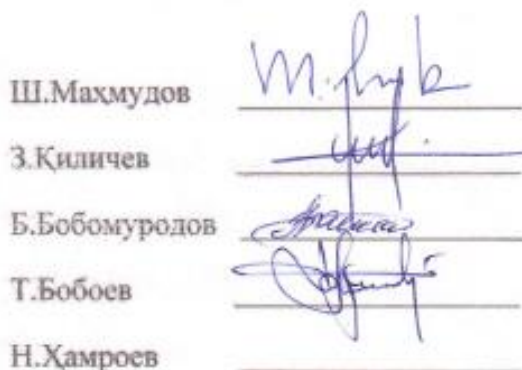 Ш.Маҳмудов
З.Қиличев
Б.Бобомуродов
Т.Бобоев
Н.Ҳамроев